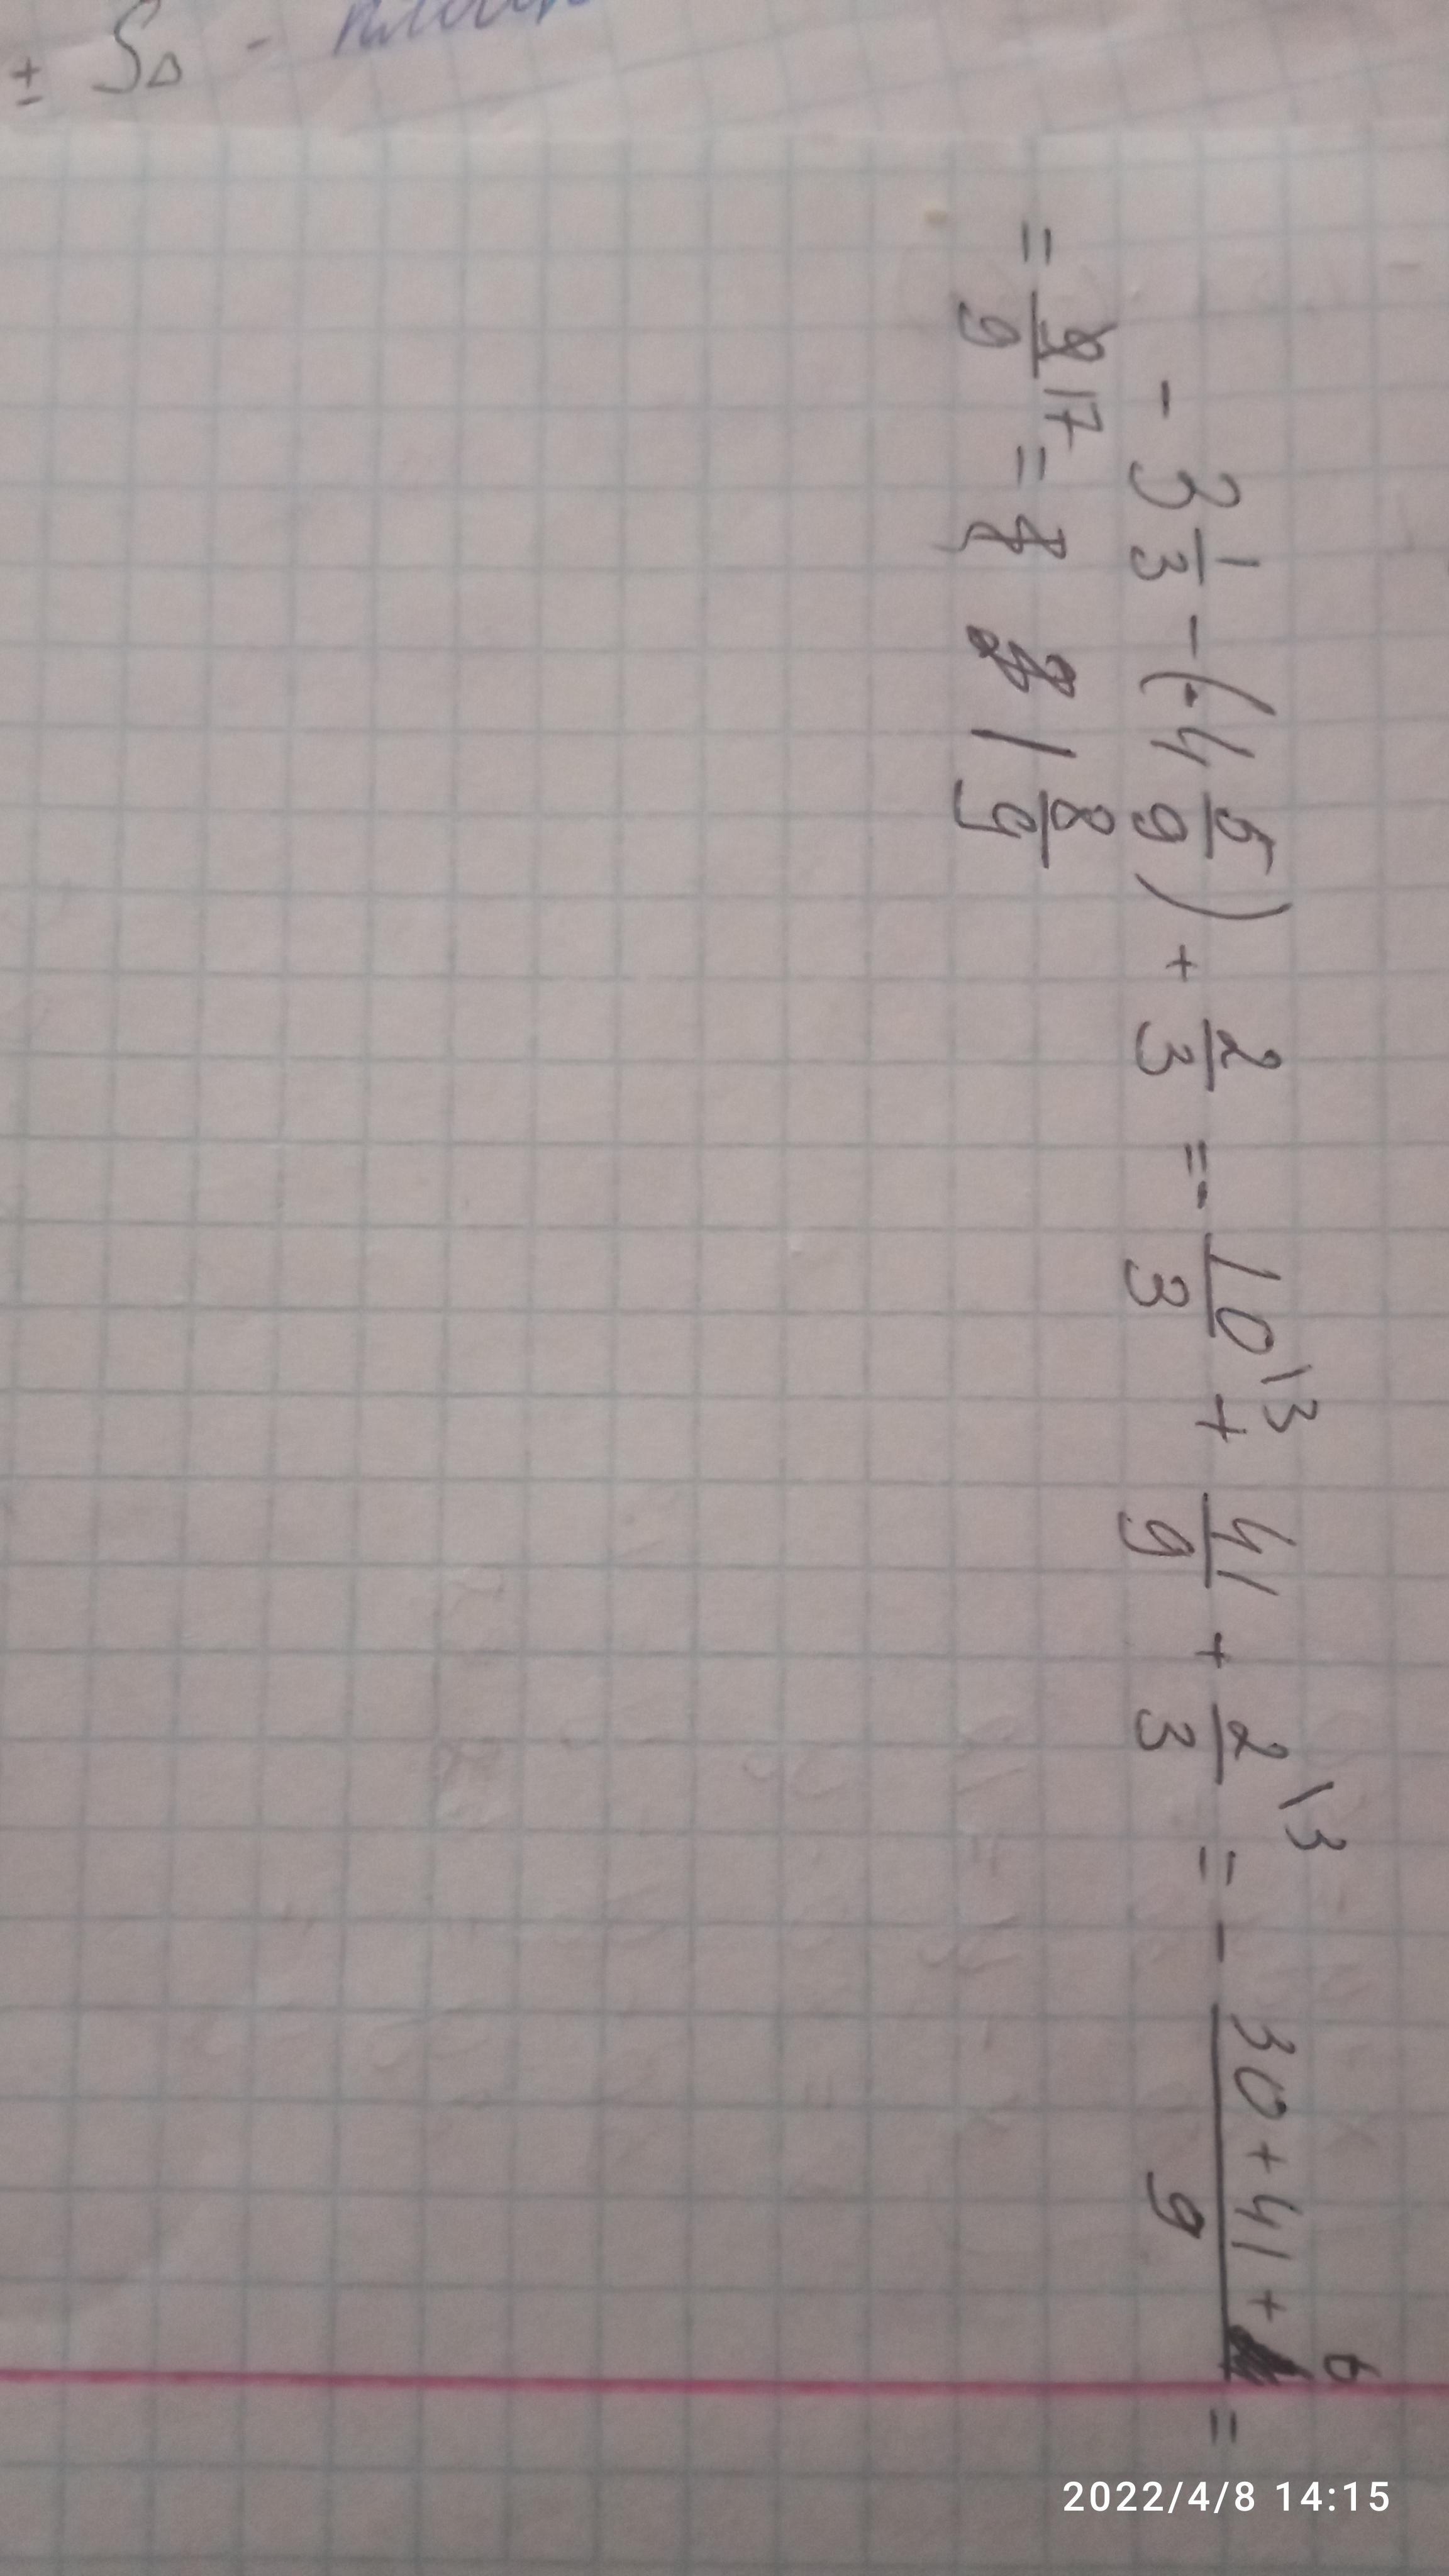 - 3 1/3 - (-4 5/9) + 2/3 = - 10/3 \3 + 41/9 + 2/3 \3 = - 30+41+6/9 =
= 17/9 = 1 8/9
± S△ -
2022/4/8 14:15